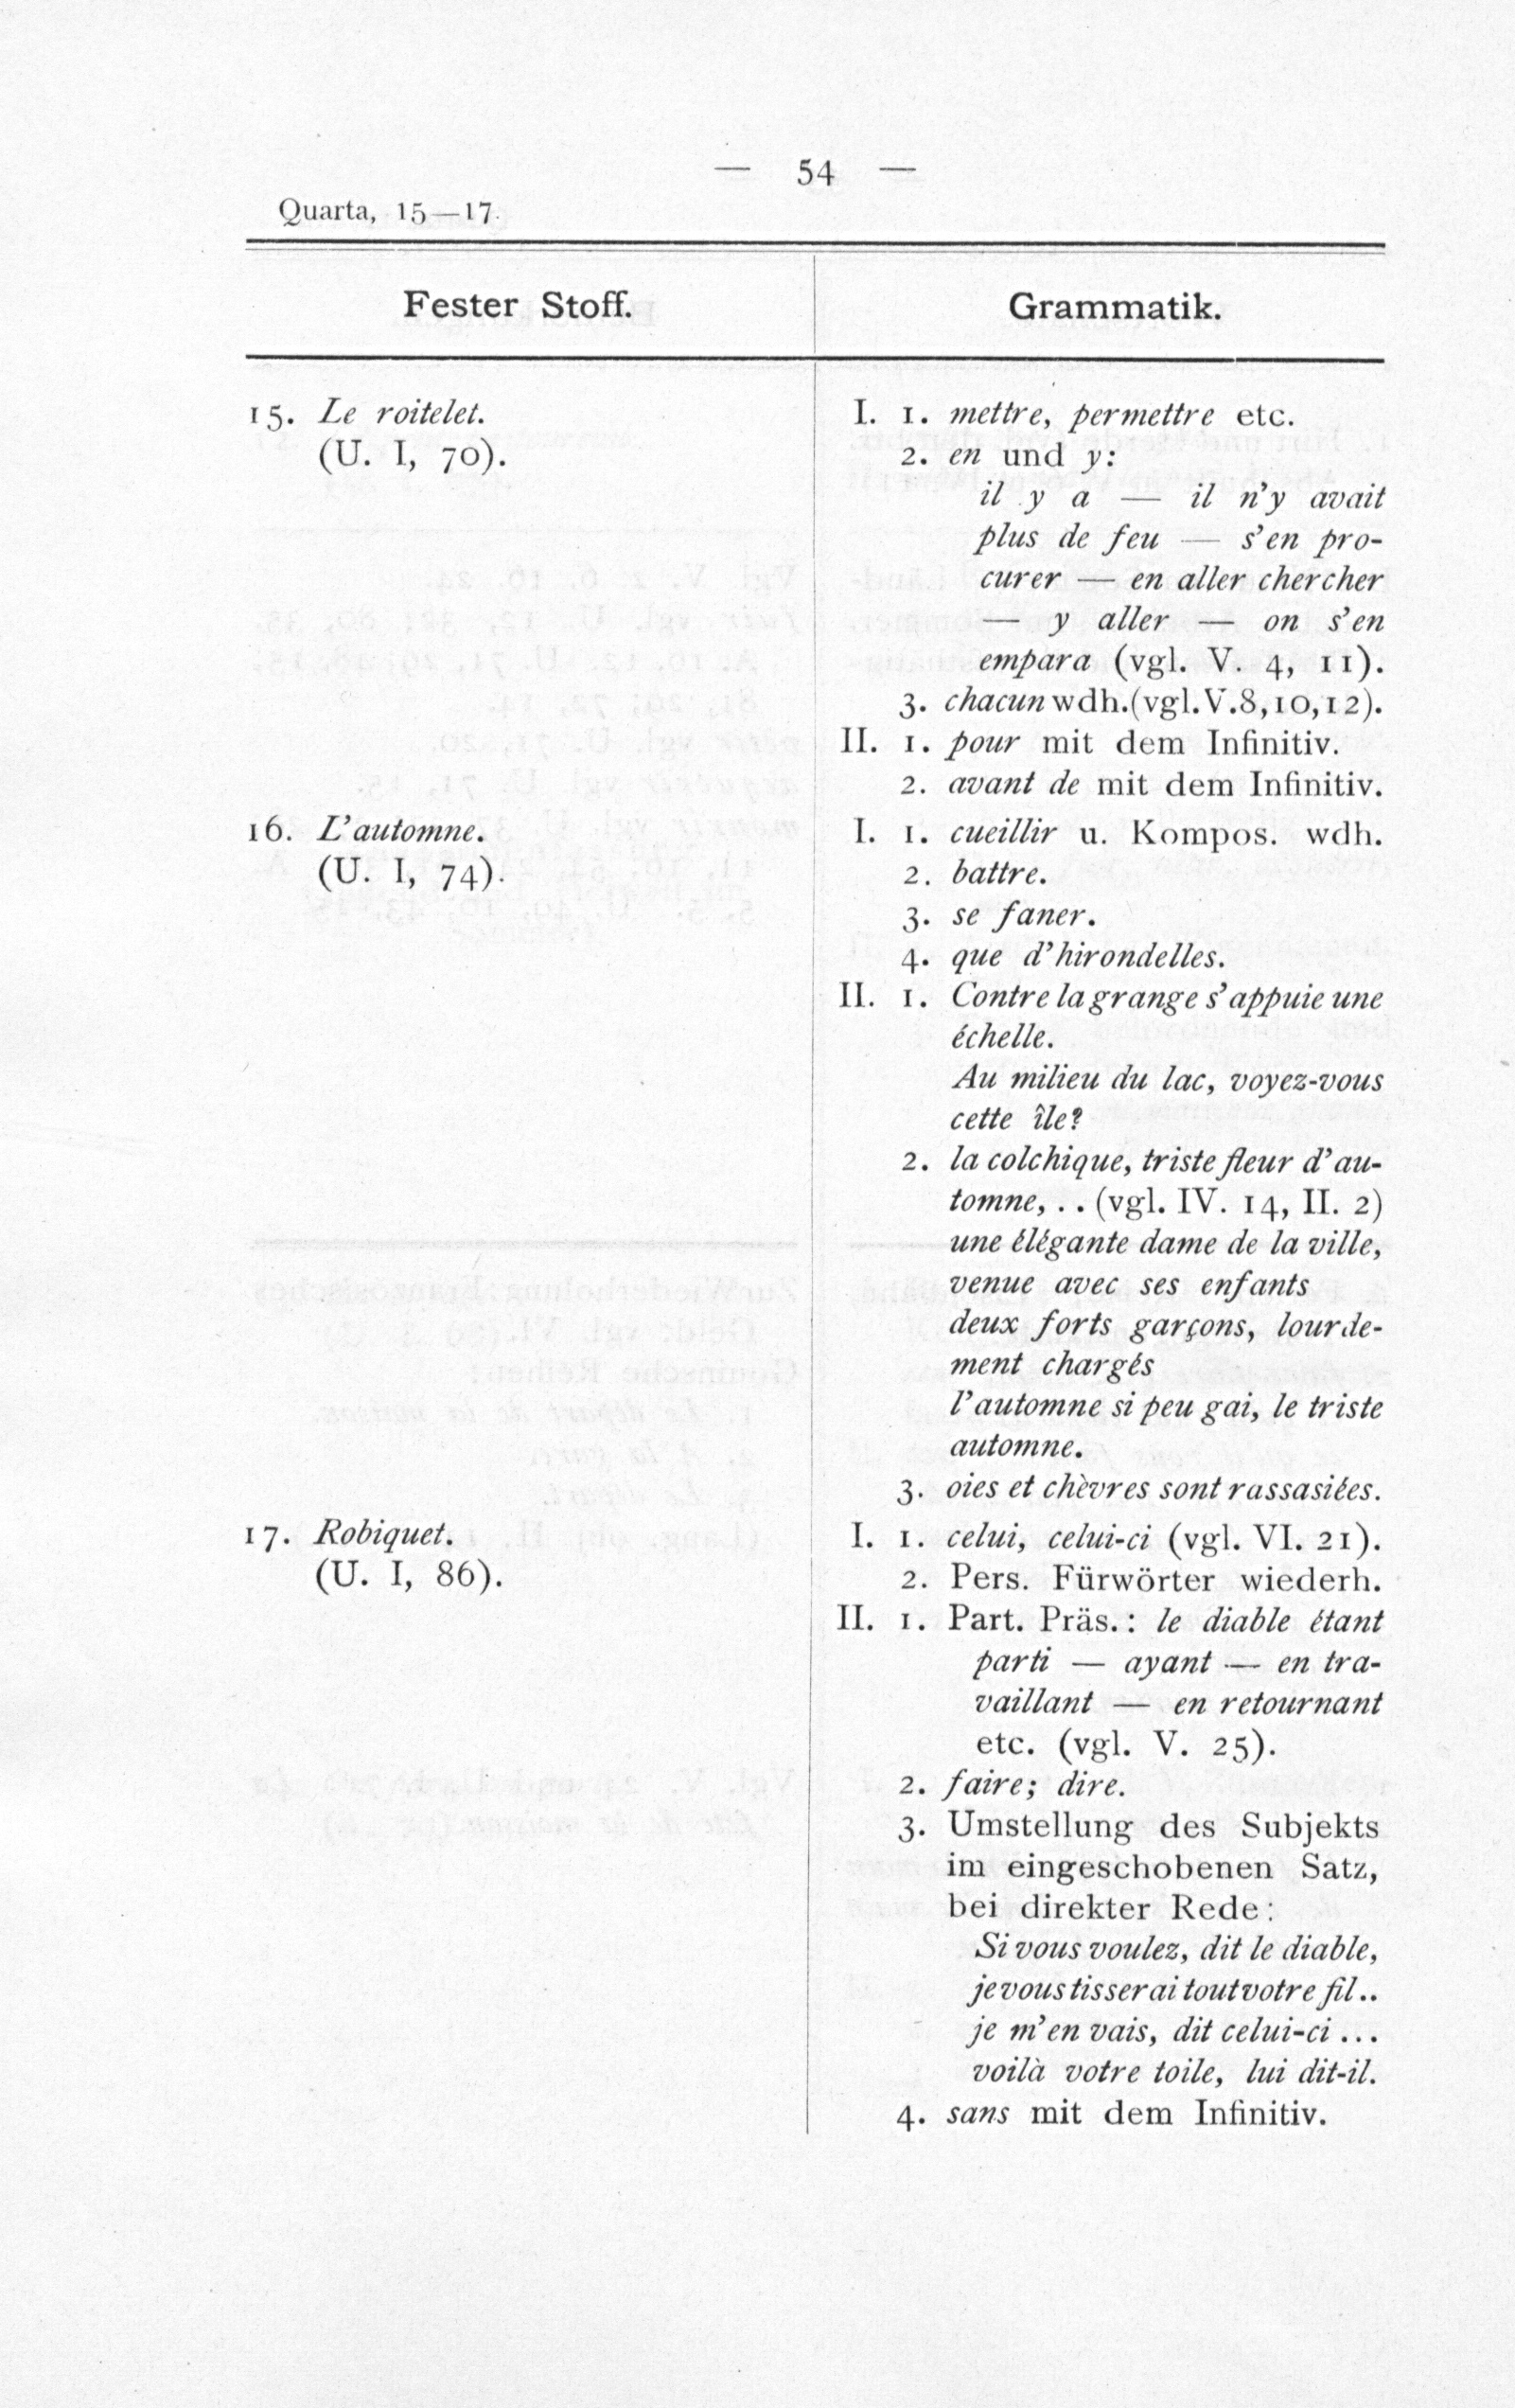 — 54 —
Quarta, 15—17.
Fester Stoff.
Grammatik.
15. Le roitelet.
(U. I, 70).
I. 1. mettre, permettre etc.
2. en und y:
il y a — il n'y avait
plus de feu — s'en pro-
curer — en aller chercher
— y aller — on s'en
empara (vgl. V. 4, 11).
3. chacun wdh. (vgl. V. 8, 10, 12).
II. 1. pour mit dem Infinitiv.
2. avant de mit dem Infinitiv.
16. L'automne.
(U. I, 74).
I. 1. cueillir u. Kompos. wdh.
2. battre.
3. se faner.
4. que d'hirondelles.
II. 1. Contre la grange s'appuie une
échelle.
Au milieu du lac, voyez-vous
cette île?
2. la colchique, triste fleur d'au-
tomne, . . (vgl. IV. 14, II. 2)
une élégante dame de la ville,
venue avec ses enfants
deux forts garçons, lourde-
ment chargés
l'automne si peu gai, le triste
automne.
3. oies et chèvres sont rassasiées.
17. Robiquet.
(U. I, 86).
I. 1. celui, celui-ci (vgl. VI. 21).
2. Pers. Fürwörter wiederh.
II. 1. Part. Präs.: le diable étant
parti — ayant — en tra-
vaillant — en retournant
etc. (vgl. V. 25).
2. faire; dire.
3. Umstellung des Subjekts
im eingeschobenen Satz,
bei direkter Rede:
Si vous voulez, dit le diable,
je vous tisserai tout votre fil ..
je m'en vais, dit celui-ci ...
voilà votre toile, lui dit-il.
4. sans mit dem Infinitiv.